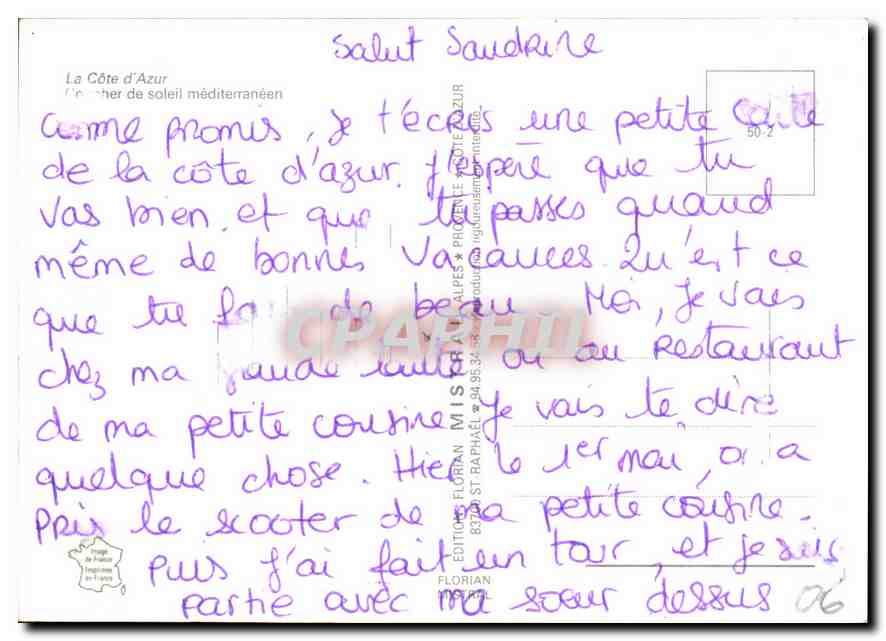 Salut Sandrine
La Côte d'Azur
de soleil méditerranéen
Comme promis, je t'écris une petite carte
50-2
de la côte d'azur. J'espère que tu
vas bien et que tu passes quand
même de bonnes vacances. Qu'est ce
que tu fais de beau. Moi, je vais
CPARHII
chez ma grande ou au restaurant
de ma petite cousine. Je vais te dire
quelque chose. Hier le 1er mai, on a
pris le scooter de ma petite cousine.
Puis j'ai fait un tour, et je suis
partie avec ma soeur dessus
06
Image
de France
Imprimée
en France
EDITIONS FLORIAN MISTRAL ALPES ★ PROVENCE ★ CÔTE D'AZUR
83700 ST-RAPHAËL ☎ 94.95.34 reproduction rigoureusement interdite
FLORIAN
MISTRAL